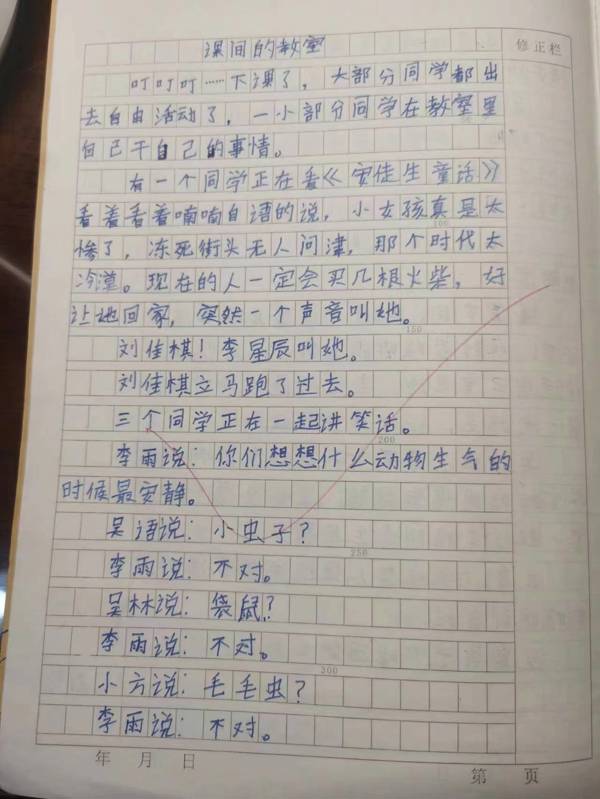 课间的教室
修正栏
叮叮叮……下课了，大部分同学都出
去自由活动了，一小部分同学在教室里
自己干自己的事情。
有一个同学正在看《安徒生童话》
看着看着喃喃自语的说，小女孩真是太
惨了，冻死街头无人问津，那个时代太
冷漠。现在的人一定会买几根火柴，好
让她回家，突然一个声音叫她。
150
刘佳棋！李星辰叫她。
刘佳棋立马跑了过去。
三个同学正在一起讲笑话。
200
李雨说：你们想想什么动物生气的
时候最安静。
吴语说：小虫子？
250
李雨说：不对。
吴林说：袋鼠？
李雨说：不对。
300
小方说：毛毛虫？
李雨说：不对。
年 月 日
第 页